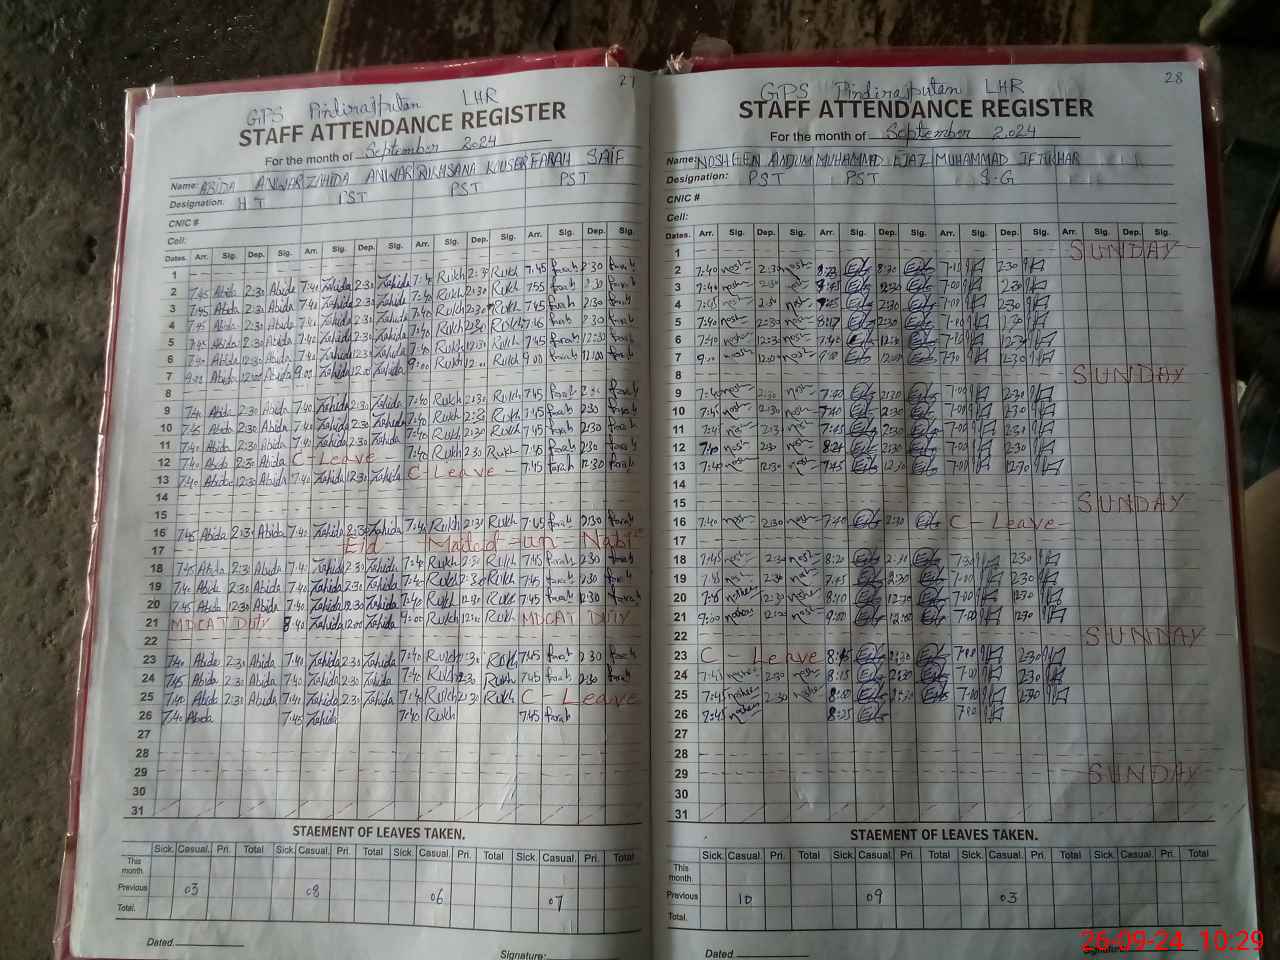 27
GPS Pindirajputan LHR
STAFF ATTENDANCE REGISTER
For the month of September 2024
Name: ABIDA ANWAR ZAHIDA ANWAR RUKHSANA KAUSER FARAH SAIF
Designation. H T PST PST PST
CNIC #
Cell:
Dates. Arr. Sig. Dep. Sig. Arr. Sig. Dep. Sig. Arr. Sig. Dep. Sig. Arr. Sig. Dep. Sig.
1
2 7:45 Abida 2:30 Abida Zahida 2:30 Zahida Rukh 2:30 Rukh 7:45 farah 2:30 farah
3 7:45 Abida 2:30 Abida Zahida 2:30 Zahida 7:40 Rukh 2:30 Rukh farah 2:30 farah
4 7:45 Abida 2:30 Abida Zahida 2:30 Zahida 7:40 Rukh 2:30 Rukh 7:45 farah 2:30 farah
5 Abida 2:30 Abida Zahida 2:30 Zahida 7:40 Rukh 2:30 Rukh 7:45 farah 2:30 farah
6 7:40 Abida 12:30 Abida 7:40 Zahida 12:30 Zahida 7:40 Rukh 12:30 Rukh 7:45 farah 12:30 farah
7 9:00 Abida 12:00 Abida 9:00 Zahida 12:00 Zahida 9:00 Rukh Rukh 9:00 farah farah
8
9 7:40 Abida 2:30 Abida 7:40 Zahida 2:30 Zahida 7:40 Rukh 2:30 Rukh 7:45 farah farah
10 7:45 Abida 2:30 Abida 7:40 Zahida 2:30 Zahida 7:40 Rukh 2:30 Rukh 7:45 farah 2:30 farah
11 7:40 Abida 2:30 Abida 7:40 Zahida 2:30 Zahida 7:40 Rukh 2:30 Rukh 7:45 farah 2:30 farah
12 7:40 Abida 2:30 Abida C-Leave 7:40 Rukh 2:30 Rukh 7:45 farah 2:30 farah
13 7:40 Abida 12:30 Abida 7:40 Zahida 12:30 Zahida C Leave - 7:45 farah 12:30 farah
14
15
16 7:45 Abida 2:30 Abida 7:40 Zahida 2:30 Zahida 7:40 Rukh 2:30 Rukh 7:45 farah 2:30 farah
17 Eid - Milad-un-Nabi
18 7:45 Abida 2:30 Abida Zahida 2:30 Zahida 7:40 Rukh 2:30 Rukh 7:45 farah 2:30 farah
19 7:40 Abida 2:30 Abida 7:40 Zahida 2:30 Zahida 7:40 Rukh 2:30 Rukh 7:45 farah 2:30 farah
20 7:45 Abida 12:30 Abida 7:40 Zahida 12:30 Zahida 7:40 Rukh 12:30 Rukh 7:45 farah 12:30 farah
21 MDCAT Duty 8:40 Zahida 12:00 Zahida 9:00 Rukh 12:00 Rukh MDCAT DUTY
22
23 7:40 Abida 2:30 Abida 7:40 Zahida 2:30 Zahida 7:40 Rukh 2:30 Rukh 7:45 farah 2:30 farah
24 7:45 Abida 2:30 Abida 7:40 Zahida 2:30 Zahida 7:40 Rukh 2:30 Rukh 7:45 farah 2:30 farah
25 7:40 Abida 2:30 Abida Zahida 2:30 Zahida Rukh 2:30 Rukh C - Leave
26 7:40 Abida 7:45 Zahida 7:40 Rukh 7:45 farah
27
28
29
30
31
STAEMENT OF LEAVES TAKEN.
Sick. Casual. Pri. Total Sick. Casual. Pri. Total Sick. Casual. Pri. Total Sick. Casual. Pri. Total
This month
Previous 03 08 06 07
Total.
Dated.
Signature:
28
GPS Pindirajputan LHR
STAFF ATTENDANCE REGISTER
For the month of September 2024
Name: NOSHEEN ANJUM MUHAMMAD EJAZ MUHAMMAD IFTIKHAR
Designation: PST PST S.G
CNIC #
Cell:
Dates. Arr. Sig. Dep. Sig. Arr. Sig. Dep. Sig. Arr. Sig. Dep. Sig. Arr. Sig. Dep. Sig.
1 SUNDAY
2 7:40 nosh 2:30 nosh 2:30
3 7:40 nosh 2:30 nosh 2:30 7:00 2:30
4 7:45 nosh 2:30 nosh 7:45 2:30 7:00 2:30
5 7:40 nosh 2:30 nosh 2:30 7:00 2:30
6 7:40 nosh 12:30 nosh 12:30 12:30
7 9:00 nosh 12:00 nosh 9:00 12:00 7:30 12:30
8 SUNDAY
9 7:40 nosh 2:30 nosh 7:40 2:30 7:00 2:30
10 7:45 nosh 2:30 nosh 7:40 2:30 7:00 2:30
11 7:45 nosh 2:30 nosh 7:45 2:30 7:00 2:30
12 7:40 nosh 2:30 nosh 2:30 7:00 2:30
13 7:40 nosh 12:30 nosh 7:45 12:30 7:00 12:30
14
15 SUNDAY
16 7:40 nosh 2:30 nosh 7:40 2:30 C - Leave -
17
18 7:45 nosh 2:30 nosh 8:20 2:30 7:30 2:30
19 7:45 nosh 2:30 nosh 7:45 2:30 7:00 2:30
20 nosheen 12:30 nosh 8:10 12:30 7:00 12:30
21 9:00 nosheen 12:00 nosh 9:00 12:00 7:00 12:30
22 SUNDAY
23 C - Leave 8:15 2:30 7:00 2:30
24 7:45 nosheen 2:30 nosh 8:15 2:30 7:00 2:30
25 7:45 nosheen 2:30 nosh 2:30 7:00 2:30
26 7:45 nosheen 8:25 7:00
27
28
29 SUNDAY
30
31
STAEMENT OF LEAVES TAKEN.
Sick. Casual. Pri. Total Sick. Casual. Pri. Total Sick. Casual. Pri. Total Sick. Casual. Pri. Total
This month
Previous 10 09 03
Total.
Dated.
26-09-24 10:29